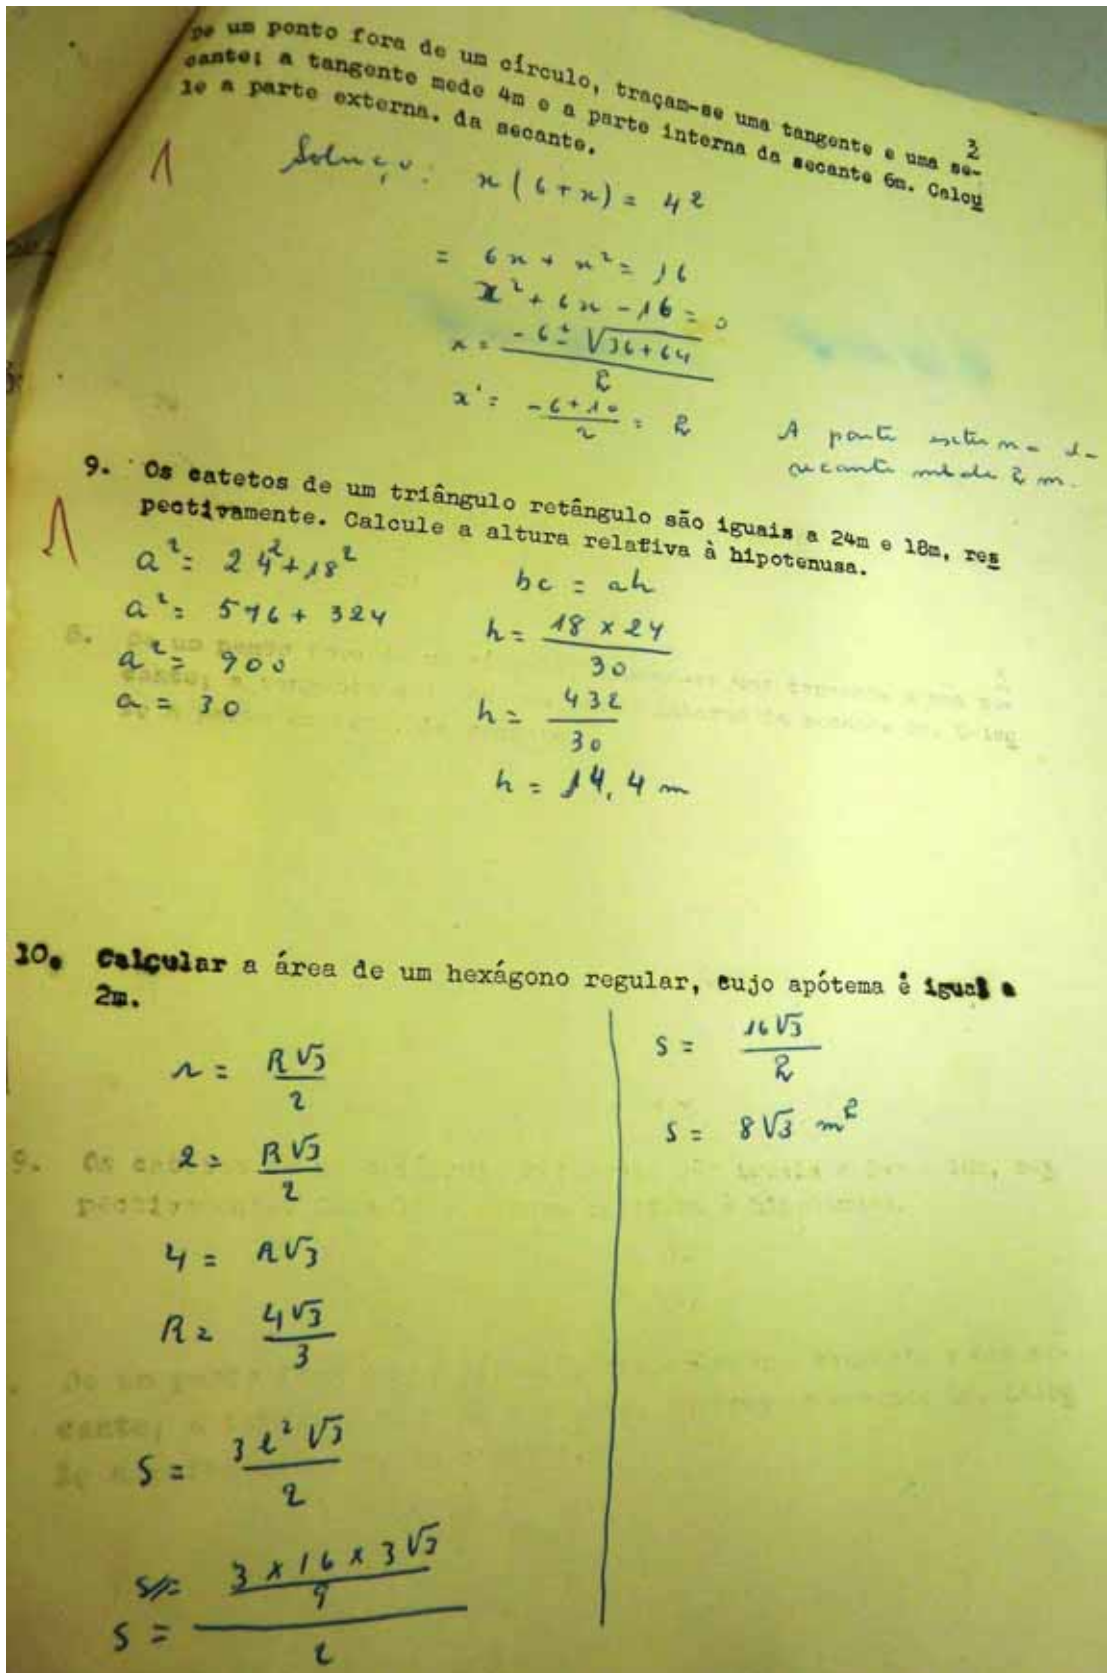 De um ponto fora de um círculo, traçam-se uma tangente e uma se-
cante; a tangente mede 4m e a parte interna da secante 6m. Calcu
le a parte externa. da secante.
2
1
Solução: x(6+x) = 4²
= 6x + x² = 16
x² + 6x - 16 = 0
x = -6 ± √36+64 / 2
x' = -6+10 / 2 = 2
A parte externa da
secante mede 2 m.
9. Os catetos de um triângulo retângulo são iguais a 24m e 18m, res
pectivamente. Calcule a altura relativa à hipotenusa.
1
a² = 24² + 18²
a² = 576 + 324
a² = 900
a = 30
bc = ah
h = 18 x 24 / 30
h = 432 / 30
h = 14,4 m
10. Calcular a área de um hexágono regular, cujo apótema é igual a
2m.
r = R√3 / 2
2 = R√3 / 2
4 = R√3
R = 4√3 / 3
S = 3l²√3 / 2
S = 3 x 16 x 3√3 / 9
S = / 2
S = 16√3 / 2
S = 8√3 m²